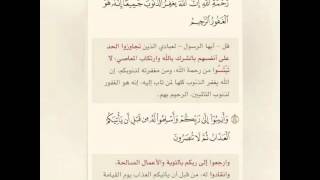 رَحْمَةِ ٱللَّهِ إِنَّ ٱللَّهَ يَغْفِرُ ٱلذُّنُوبَ جَمِيعًا إِنَّهُۥ هُوَ
ٱلْغَفُورُ ٱلرَّحِيمُ
قل - أيها الرسول - لعبادي الذين تجاوزوا الحد
على أنفسهم بالشرك بالله وارتكاب المعاصي: لا
تيْئَسوا من رحمة الله، ومن مغفرته لذنوبكم، إن
الله يغفر الذنوب كلها لمن تاب إليه؛ إنه هو الغفور
لذنوب التائبين، الرحيم بهم.
وَأَنِيبُوٓاْ إِلَىٰ رَبِّكُمْ وَأَسْلِمُواْ لَهُۥ مِن قَبْلِ أَن يَأْتِيَكُمُ
ٱلْعَذَابُ ثُمَّ لَا تُنصَرُونَ
وارجعوا إلى ربكم بالتوبة والأعمال الصالحة،
وانقادوا له، من قبل أن يأتيكم العذاب يوم القيامة